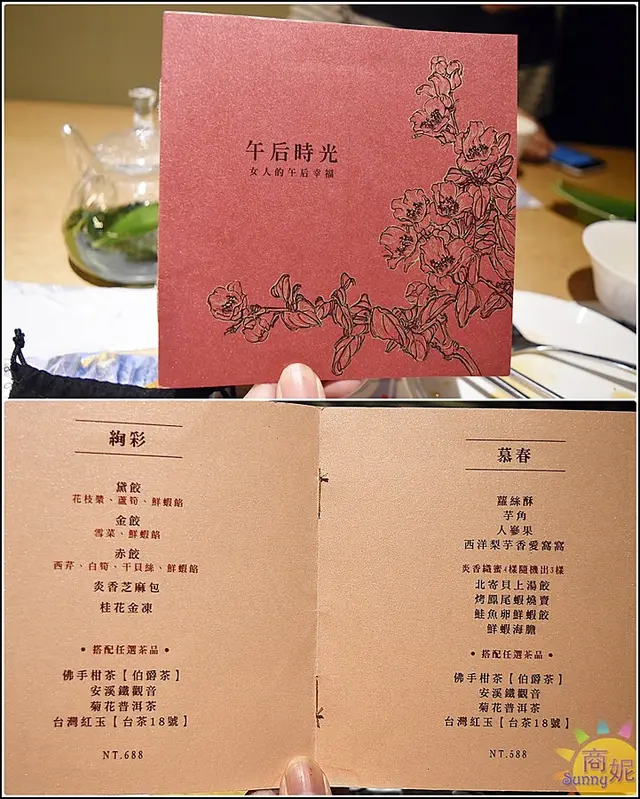 午后時光
女人的午后幸福
絢彩
黛餃
花枝漿、蘆筍、鮮蝦餡
金餃
雪菜、鮮蝦餡
赤餃
西芹、白筍、干貝絲、鮮蝦餡
炎香芝麻包
桂花金凍
•搭配任選茶品•
佛手柑茶【伯爵茶】
安溪鐵觀音
菊花普洱茶
台灣紅玉【台茶18號】
NT.688
慕春
蘿絲酥
芋角
人蔘果
西洋梨芋香愛窩窩
炎香織蜜4樣隨機出3樣
北寄貝上湯餃
烤鳳尾蝦燒賣
鮭魚卵鮮蝦餃
鮮蝦海膽
•搭配任選茶品•
佛手柑茶【伯爵茶】
安溪鐵觀音
菊花普洱茶
台灣紅玉【台茶18號】
NT.588
商妮
Sunny